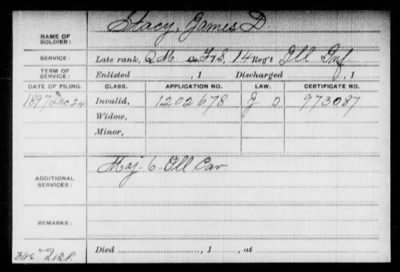 NAME OF SOLDIER: Stacy, James D.
SERVICE: Late rank, Q M F&S, 14 Reg't Ill Inf
TERM OF SERVICE: Enlisted , 1 Discharged , 1
DATE OF FILING. CLASS. APPLICATION NO. LAW. CERTIFICATE NO.
1897 Dec 24 Invalid, 1202678 G D 973087
Widow,
Minor,
ADDITIONAL SERVICES: Maj. 6. Ill Cav
REMARKS:
Died , 1 , at